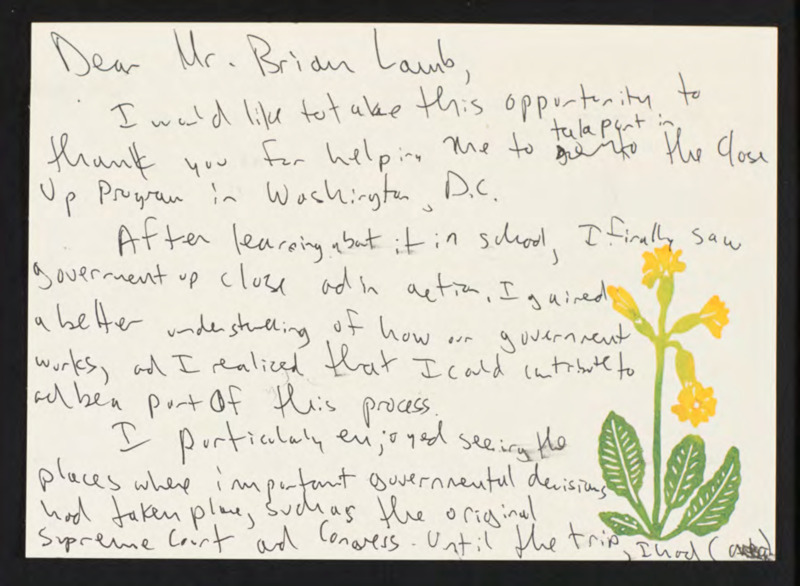 Dear Mr. Brian Lamb,
I would like to take this opportunity to
thank you for helping me to take part in the Close
Up Program in Washington, D.C.
After learning about it in school, I finally saw
government up close and in action. I gained
a better understanding of how our government
works, and I realized that I could contribute to
and be a part of this process.
I particularly enjoyed seeing the
places where important governmental decisions
had taken place, such as the original
Supreme Court and Congress. Until the trip, I had (